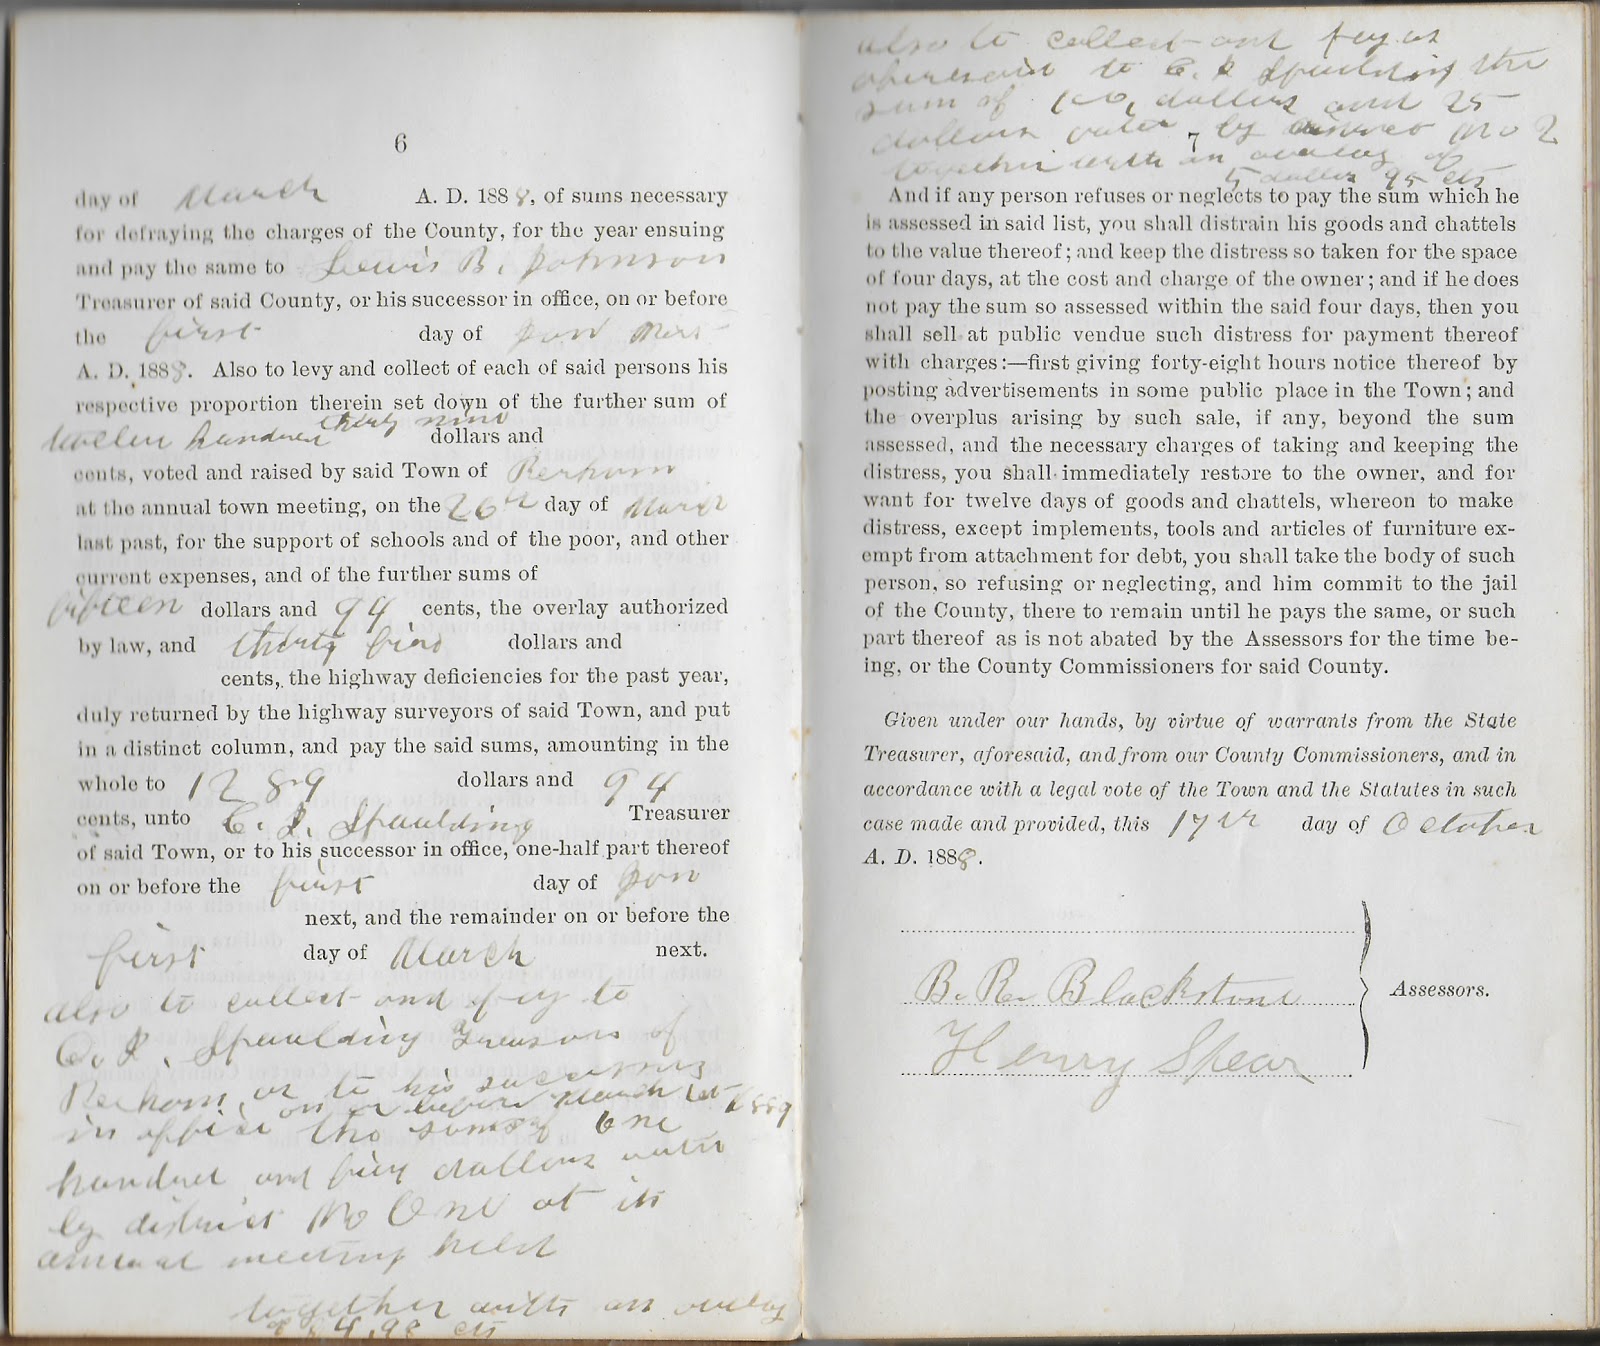 6
day of March A. D. 1888, of sums necessary
for defraying the charges of the County, for the year ensuing
and pay the same to Lewis B. Johnson
Treasurer of said County, or his successor in office, on or before
the first day of Jan next
A. D. 1888. Also to levy and collect of each of said persons his
respective proportion therein set down of the further sum of
hundred thirty nine dollars and
cents, voted and raised by said Town of Perham
at the annual town meeting, on the 26th day of March
last past, for the support of schools and of the poor, and other
current expenses, and of the further sums of
fifteen dollars and 94 cents, the overlay authorized
by law, and thirty five dollars and
cents, the highway deficiencies for the past year,
duly returned by the highway surveyors of said Town, and put
in a distinct column, and pay the said sums, amounting in the
whole to 1289 dollars and 94
cents, unto C. I. Spaulding Treasurer
of said Town, or to his successor in office, one-half part thereof
on or before the first day of Jan
next, and the remainder on or before the
first day of March next.
also to collect and pay to
Spaulding Treasurer of
Perham, or to his successors
on or before March 1st 1889
in office the sums of one
hundred and dollars
by district No One at its
annual meeting held
together with an overlay
of 4.98 cts
also to collect and pay as
aforesaid to C. I. Spaulding the
sum of dollars and 25
dollars by district No 2
7
together with an overlay of
5 dollars 95 cts
And if any person refuses or neglects to pay the sum which he
is assessed in said list, you shall distrain his goods and chattels
to the value thereof; and keep the distress so taken for the space
of four days, at the cost and charge of the owner; and if he does
not pay the sum so assessed within the said four days, then you
shall sell at public vendue such distress for payment thereof
with charges:—first giving forty-eight hours notice thereof by
posting advertisements in some public place in the Town; and
the overplus arising by such sale, if any, beyond the sum
assessed, and the necessary charges of taking and keeping the
distress, you shall immediately restore to the owner, and for
want for twelve days of goods and chattels, whereon to make
distress, except implements, tools and articles of furniture ex-
empt from attachment for debt, you shall take the body of such
person, so refusing or neglecting, and him commit to the jail
of the County, there to remain until he pays the same, or such
part thereof as is not abated by the Assessors for the time be-
ing, or the County Commissioners for said County.
Given under our hands, by virtue of warrants from the State
Treasurer, aforesaid, and from our County Commissioners, and in
accordance with a legal vote of the Town and the Statutes in such
case made and provided, this 17th day of October
A. D. 1888.
B. R. Blackstone
Assessors.
Henry Spear